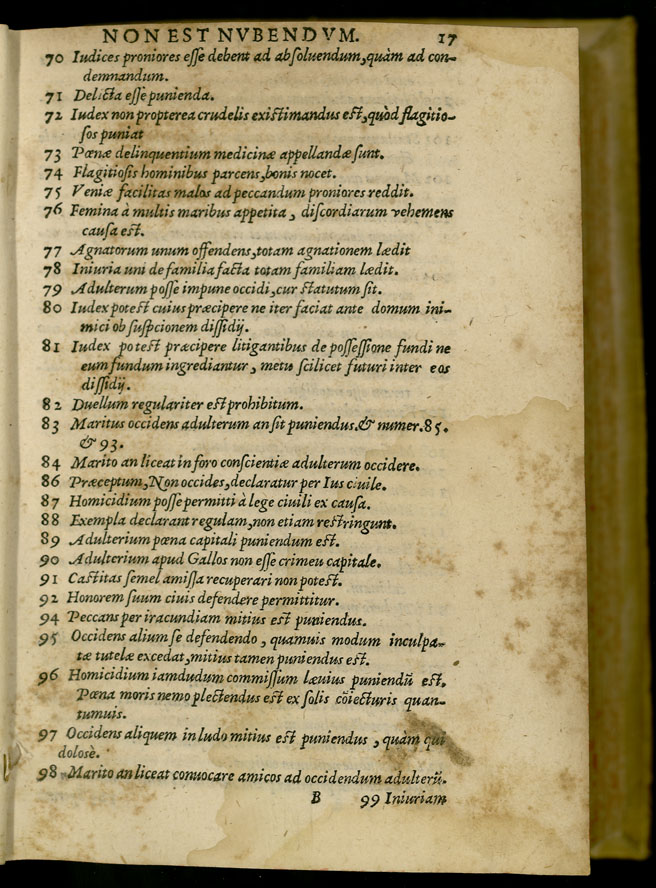 NON EST NVBENDVM. 17
70 Iudices proniores eſſe debent ad abſoluendum, quàm ad con-
demnandum.
71 Delicta eſſe punienda.
72 Iudex non propterea crudelis exiſtimandus eſt, quòd flagitio-
ſos puniat
73 Pœnæ delinquentium medicinæ appellandæ ſunt.
74 Flagitioſis hominibus parcens, bonis nocet.
75 Veniæ facilitas malos ad peccandum proniores reddit.
76 Femina à multis maribus appetita, diſcordiarum vehemens
cauſa eſt.
77 Agnatorum unum offendens, totam agnationem lædit
78 Iniuria uni de familia facta totam familiam lædit.
79 Adulterum poſſe impune occidi, cur ſtatutum ſit.
80 Iudex poteſt cuius præcipere ne iter faciat ante domum ini-
mici ob ſuſpcionem diſſidij.
81 Iudex poteſt præcipere litigantibus de poſſeſſione fundi ne
eum fundum ingrediantur, metu ſcilicet futuri inter eos
diſſidij.
82 Duellum regulariter eſt prohibitum.
83 Maritus occidens adulterum an ſit puniendus. & numer. 85.
& 93.
84 Marito an liceat in foro conſcientiæ adulterum occidere.
86 Præceptum, Non occides, declaratur per Ius ciuile.
87 Homicidium poſſe permitti à lege ciuili ex cauſa.
88 Exempla declarant regulam, non etiam reſtringunt.
89 Adulterium pœna capitali puniendum eſt.
90 Adulterium apud Gallos non eſſe crimeu capitale.
91 Caſtitas ſemel amiſſa recuperari non poteſt.
92 Honorem ſuum ciuis defendere permittitur.
94 Peccans per iracundiam mitius eſt puniendus.
95 Occidens alium ſe defendendo, quamuis modum inculpa-
tæ tutelæ excedat, mitius tamen puniendus eſt.
96 Homicidium iamdudum commiſſum læuius puniendū eſt.
Pœna moris nemo plectendus eſt ex ſolis cōiecturis quan-
tumuis.
97 Occidens aliquem in ludo mitius eſt puniendus, quàm qui
dolosè.
98 Marito an liceat conuocare amicos ad occidendum adulterū.
B 99 Iniuriam